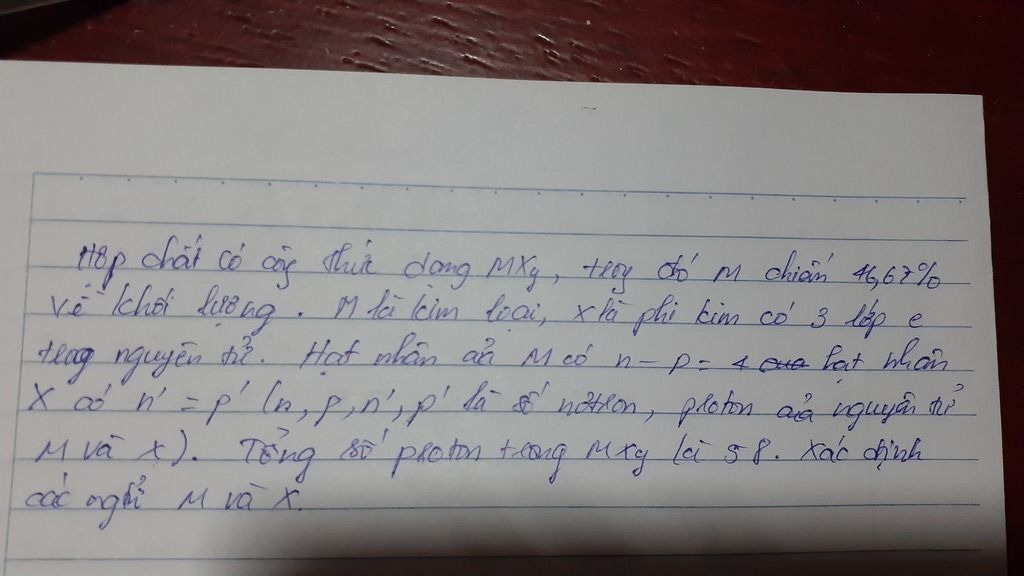 Hợp chất có công thức dạng MXy, trong đó M chiếm 46,67%
về khối lượng. M là kim loại, X là phi kim có 3 lớp e
trong nguyên tử. Hạt nhân của M có n - p = 4 hạt nhân
X có n' = p' (n, p, n', p' là số nơtron, proton của nguyên tử
M và X). Tổng số proton trong MXy là 58. Xác định
các ngtử M và X.